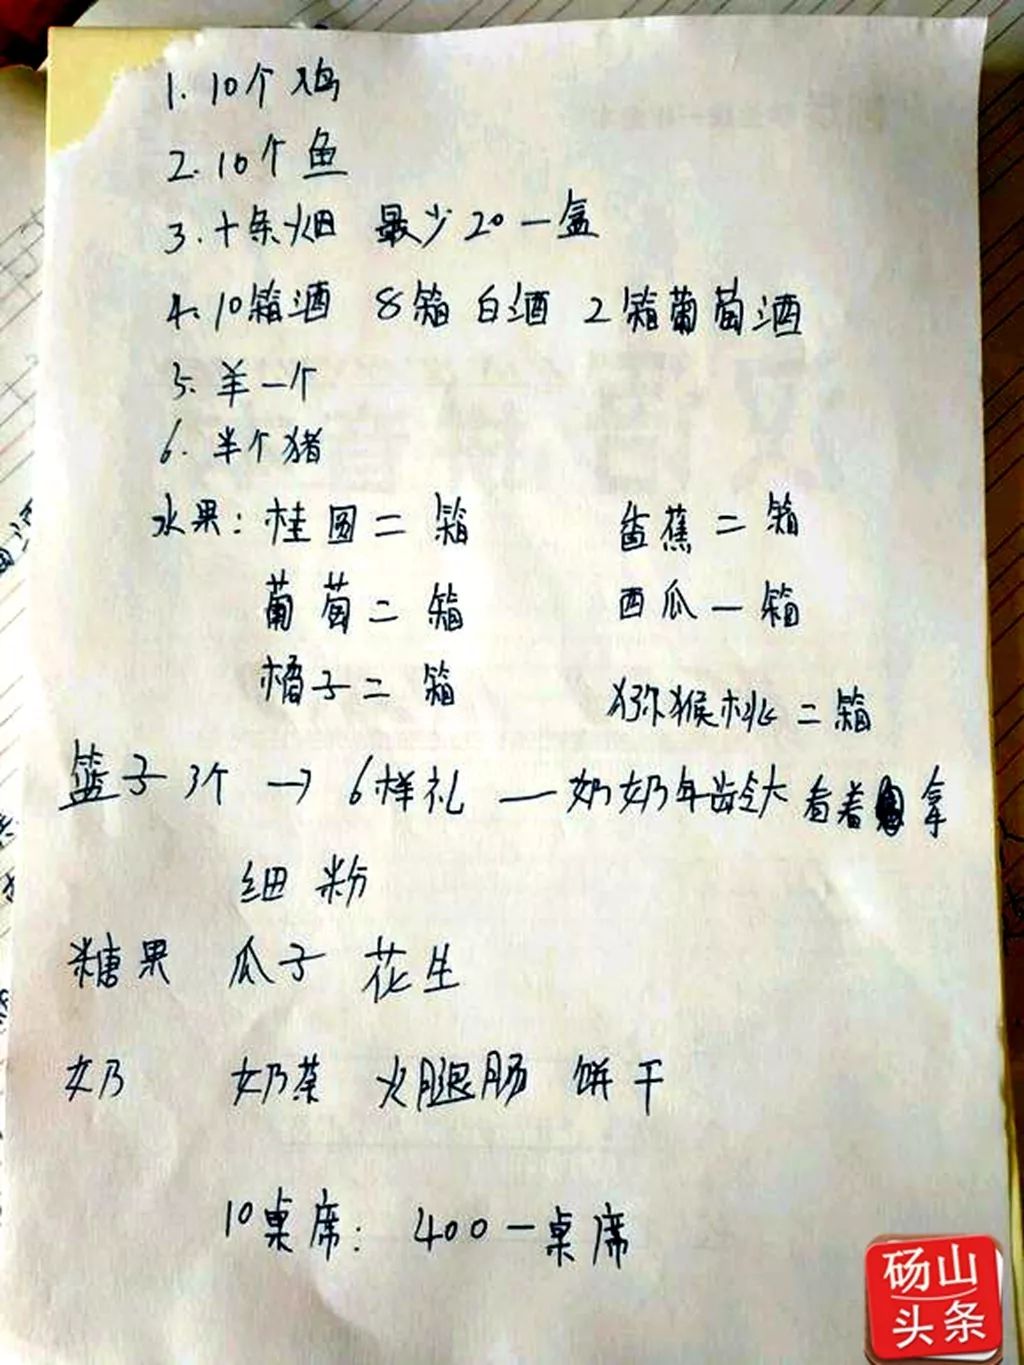 1. 10个鸡
2. 10个鱼
3. 十条烟 最少20一盒
4. 10箱酒 8箱白酒 2箱葡萄酒
5. 羊一个
6. 半个猪
水果: 桂圆二箱 香蕉二箱
葡萄二箱 西瓜一箱
橘子二箱 猕猴桃二箱
篮子3个 → 6样礼 — 奶奶年龄大看着拿
细粉
糖果 瓜子 花生
奶 奶茶 火腿肠 饼干
10桌席: 400一桌席
砀山
头条